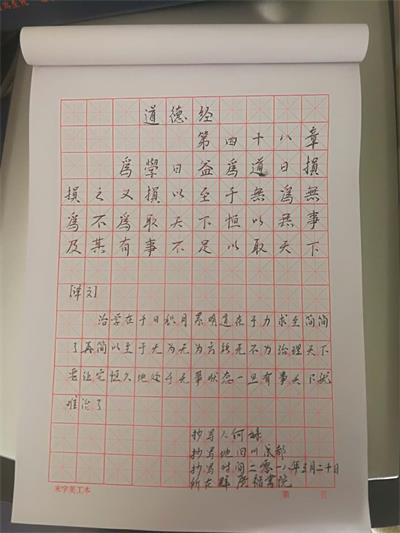 道德经
第四十八章
爲學日益爲道日損
損之又損以至于無爲無
爲不爲取天下恒以無事
及其有事不足以取天下
[译文]
治学在于日积月累明道在于力求至简简
了再简以至于无为无为方能无不为治理天下
要让它恒久地处于无事状态一旦有事天下就
难治了
抄写人何
抄写地四川成都
抄写时间二零一八年三月二十日
所在群 楷书院
米字美工本
第 页